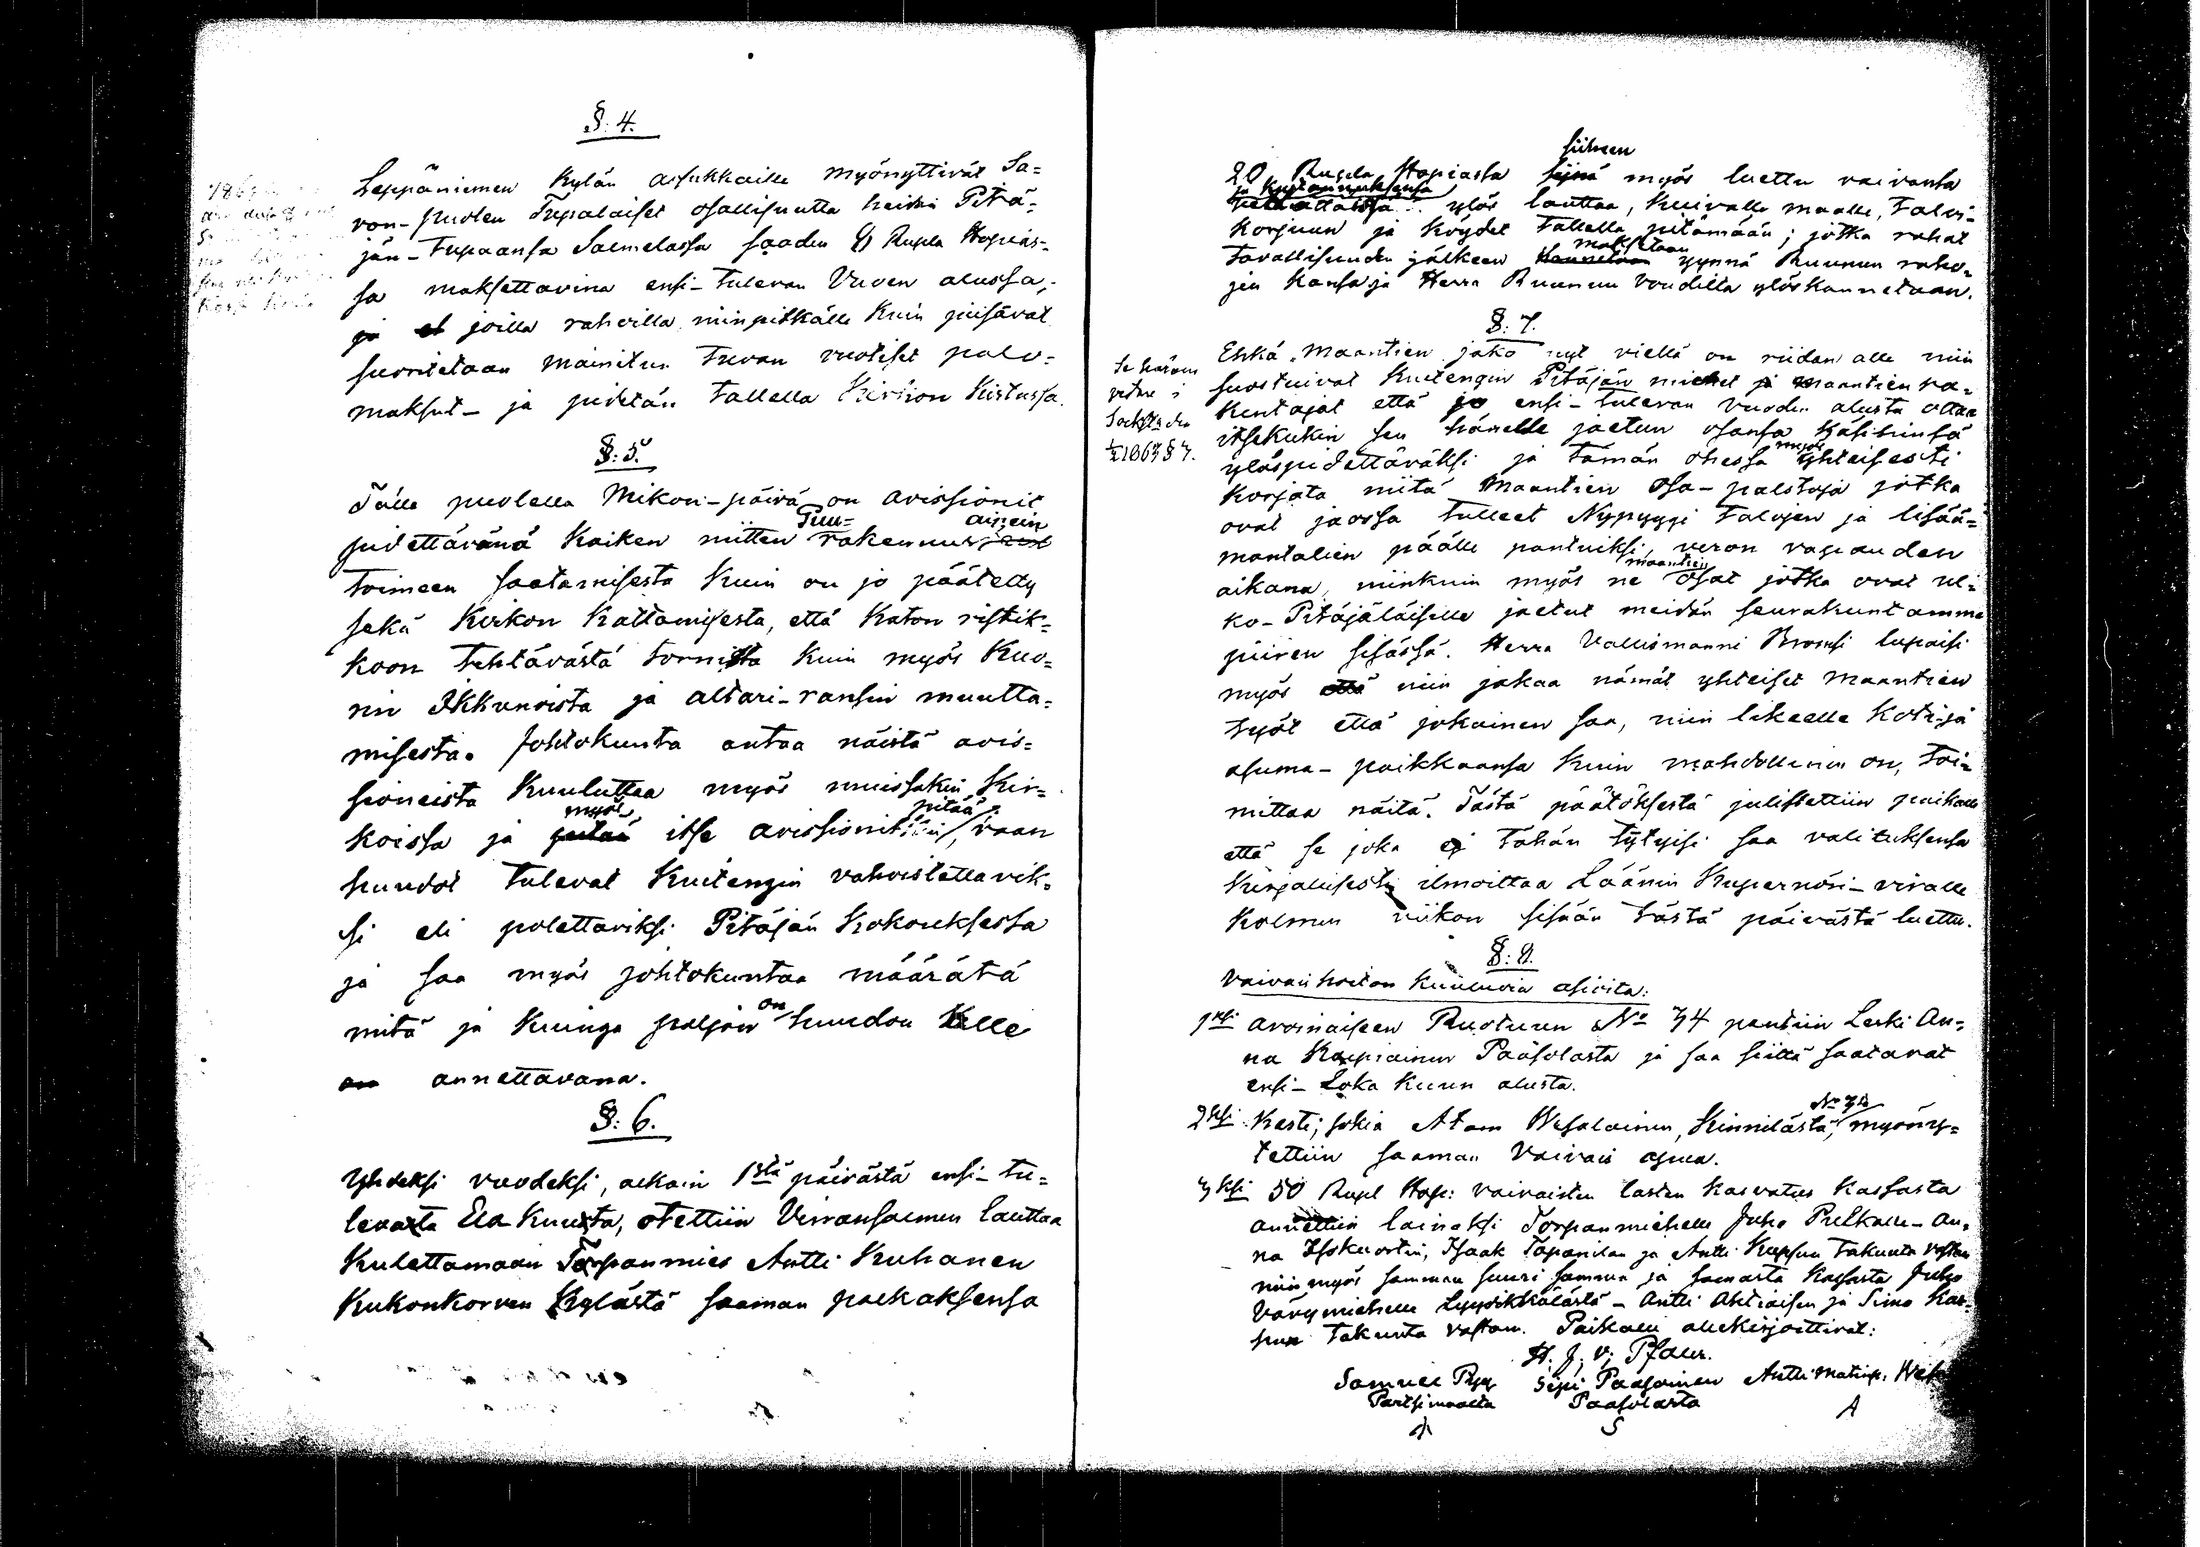 §: 4.
Leppäniemen Kylän asukkaille myönyttivät Sa=
von-puolen Tupalaiset osallisuutta heidän Pitä=
jän-Tupaansa Salmelassa saaden Rupla Hopias=
sa maksettavina ensi-tulevan Vuoden alussa,
ja joilla rahoilla niinpitkälle kuin piisävät
suoritetaan mainitun tuvan vuotiset palo=
maksut- ja pidetän tallella Kirkon Kistussa.
§: 5.
Tälle puolella Mikon-päivä on avissionit
Puu= ainein
pidettävänä kaiken niitten rakennus
toimeen saatamisesta kuin on jo päätetty
sekä Kirkon Kattamisesta, että Katon ristik=
koon tehtävästä tornista kuin myös Kuo=
rin Ikkunoista ja altari-ransin muutta=
misesta. Johtokunta antaa näistä avis=
sioneista Kuuluttaa myös muissakin Kir=
myös pitää
koissa ja pitää itse avissionit, vaan
huudot tulevat Kuitengin vahvistettavik=
si eli polettaviksi Pitäjän Kokouksessa
ja saa myös johtokuntaa määrätä
on
mitä ja kuinga paljon huudon kelle
on annettavana.
§: 6.
Yhdeksi vuodeksi, alkain 1stä päivästä ensi-tu=
levasta Elo Kuusta, otettiin Virransalmen lauttaa
Kulettamaan Torpanmies Antti Kuhanen
Kukonkorven Kylästä saaman palkaksensa
siihen
20 Rupla Hopiassa myös luettu vaivansa
ja kustannuksensa
ylös lauttaa, kuivalle maalle, talvi-
Korjuun ja Köydet tallella pitämään; jotka rahat
maksetaan
tavallisuuden jälkeen ynnä Ruunun raho-
jen kansa ja Herra Ruunun Voudilta ylöskannetaan.
§: 7.
Ehkä Maantien jako nyt viellä on riidan alle niin
suostuivat Kuitengin Pitäjän miehet ja maantien ra=
kentajat että jo ensi-tulevan vuoden alusta ottaa
itsekukin sen hänelle jaetun osansa käsihinsä
myös
ylöspidettäväksi ja tämän ohessa yhteisesti
Korjata niitä Maantien osa-palstoja jotka
ovat jaossa tulleet Nypyygi talojen ja lisää=
mantalien päälle pantuiksi, veron vapauden
maantien
aikana, niinkuin myös ne osat jotka ovat ul=
ko-Pitäjäläisille jaetut meidän seurakuntamme
piiren sisässä. Herra Vallismanni Bronsi lupaisi
myös että niin jakaa nämät yhteiset Maantien
työt että jokainen saa, niin likeelle koti- ja
asuma-paikkaansa kuin mahdollinen on, toi=
mittaa näitä. Tästä päätöksestä julistettiin paikalle
että se joka ej tähän tytyisi saa valituksensa
Kirjallisesti ilmoittaa Läänin Kupernöri-viralle
Kolmen viikon sisään tästä päivästä luettu.
Se härom
vidare i
Sockst:n den
1863 § 7.
§: 8.
Vaivaishoiton kuuluvia asioita:
1ksi avoinaiseen Ruotuun No 34 pantiin Leski An=
na Kaupiainen Pääsolasta ja saa siittä saatavat
ensi-Loka kuun alusta.
No 74
2ksi Kesti; sokia Atam Wesalainen, Kinnilästä, myönny=
tettiin saaman Vaivais apua.
3ksi 50 Rupl Hop: vaivaisten lasten Kasvatus Kassasta
annettiin lainaksi Torpanmiehelle Juho Pulkalle - An=
na Iskuortin, Isaak Tapanilan ja Antti Kupsun takuuta vastan
niin myös samman suuri summa ja samasta kassasta Juho
Vävymiehelle Lyydikkälästä - Antti Ahtiaisen ja Simo Kar=
hun takuuta vastan. Paikalle allekirjoittivat:
H. J. v; Pfaler.
Samuel Pyy Sipi Pääsoinen Antti Matinp.
Parsimaalta Pääsolasta
S A